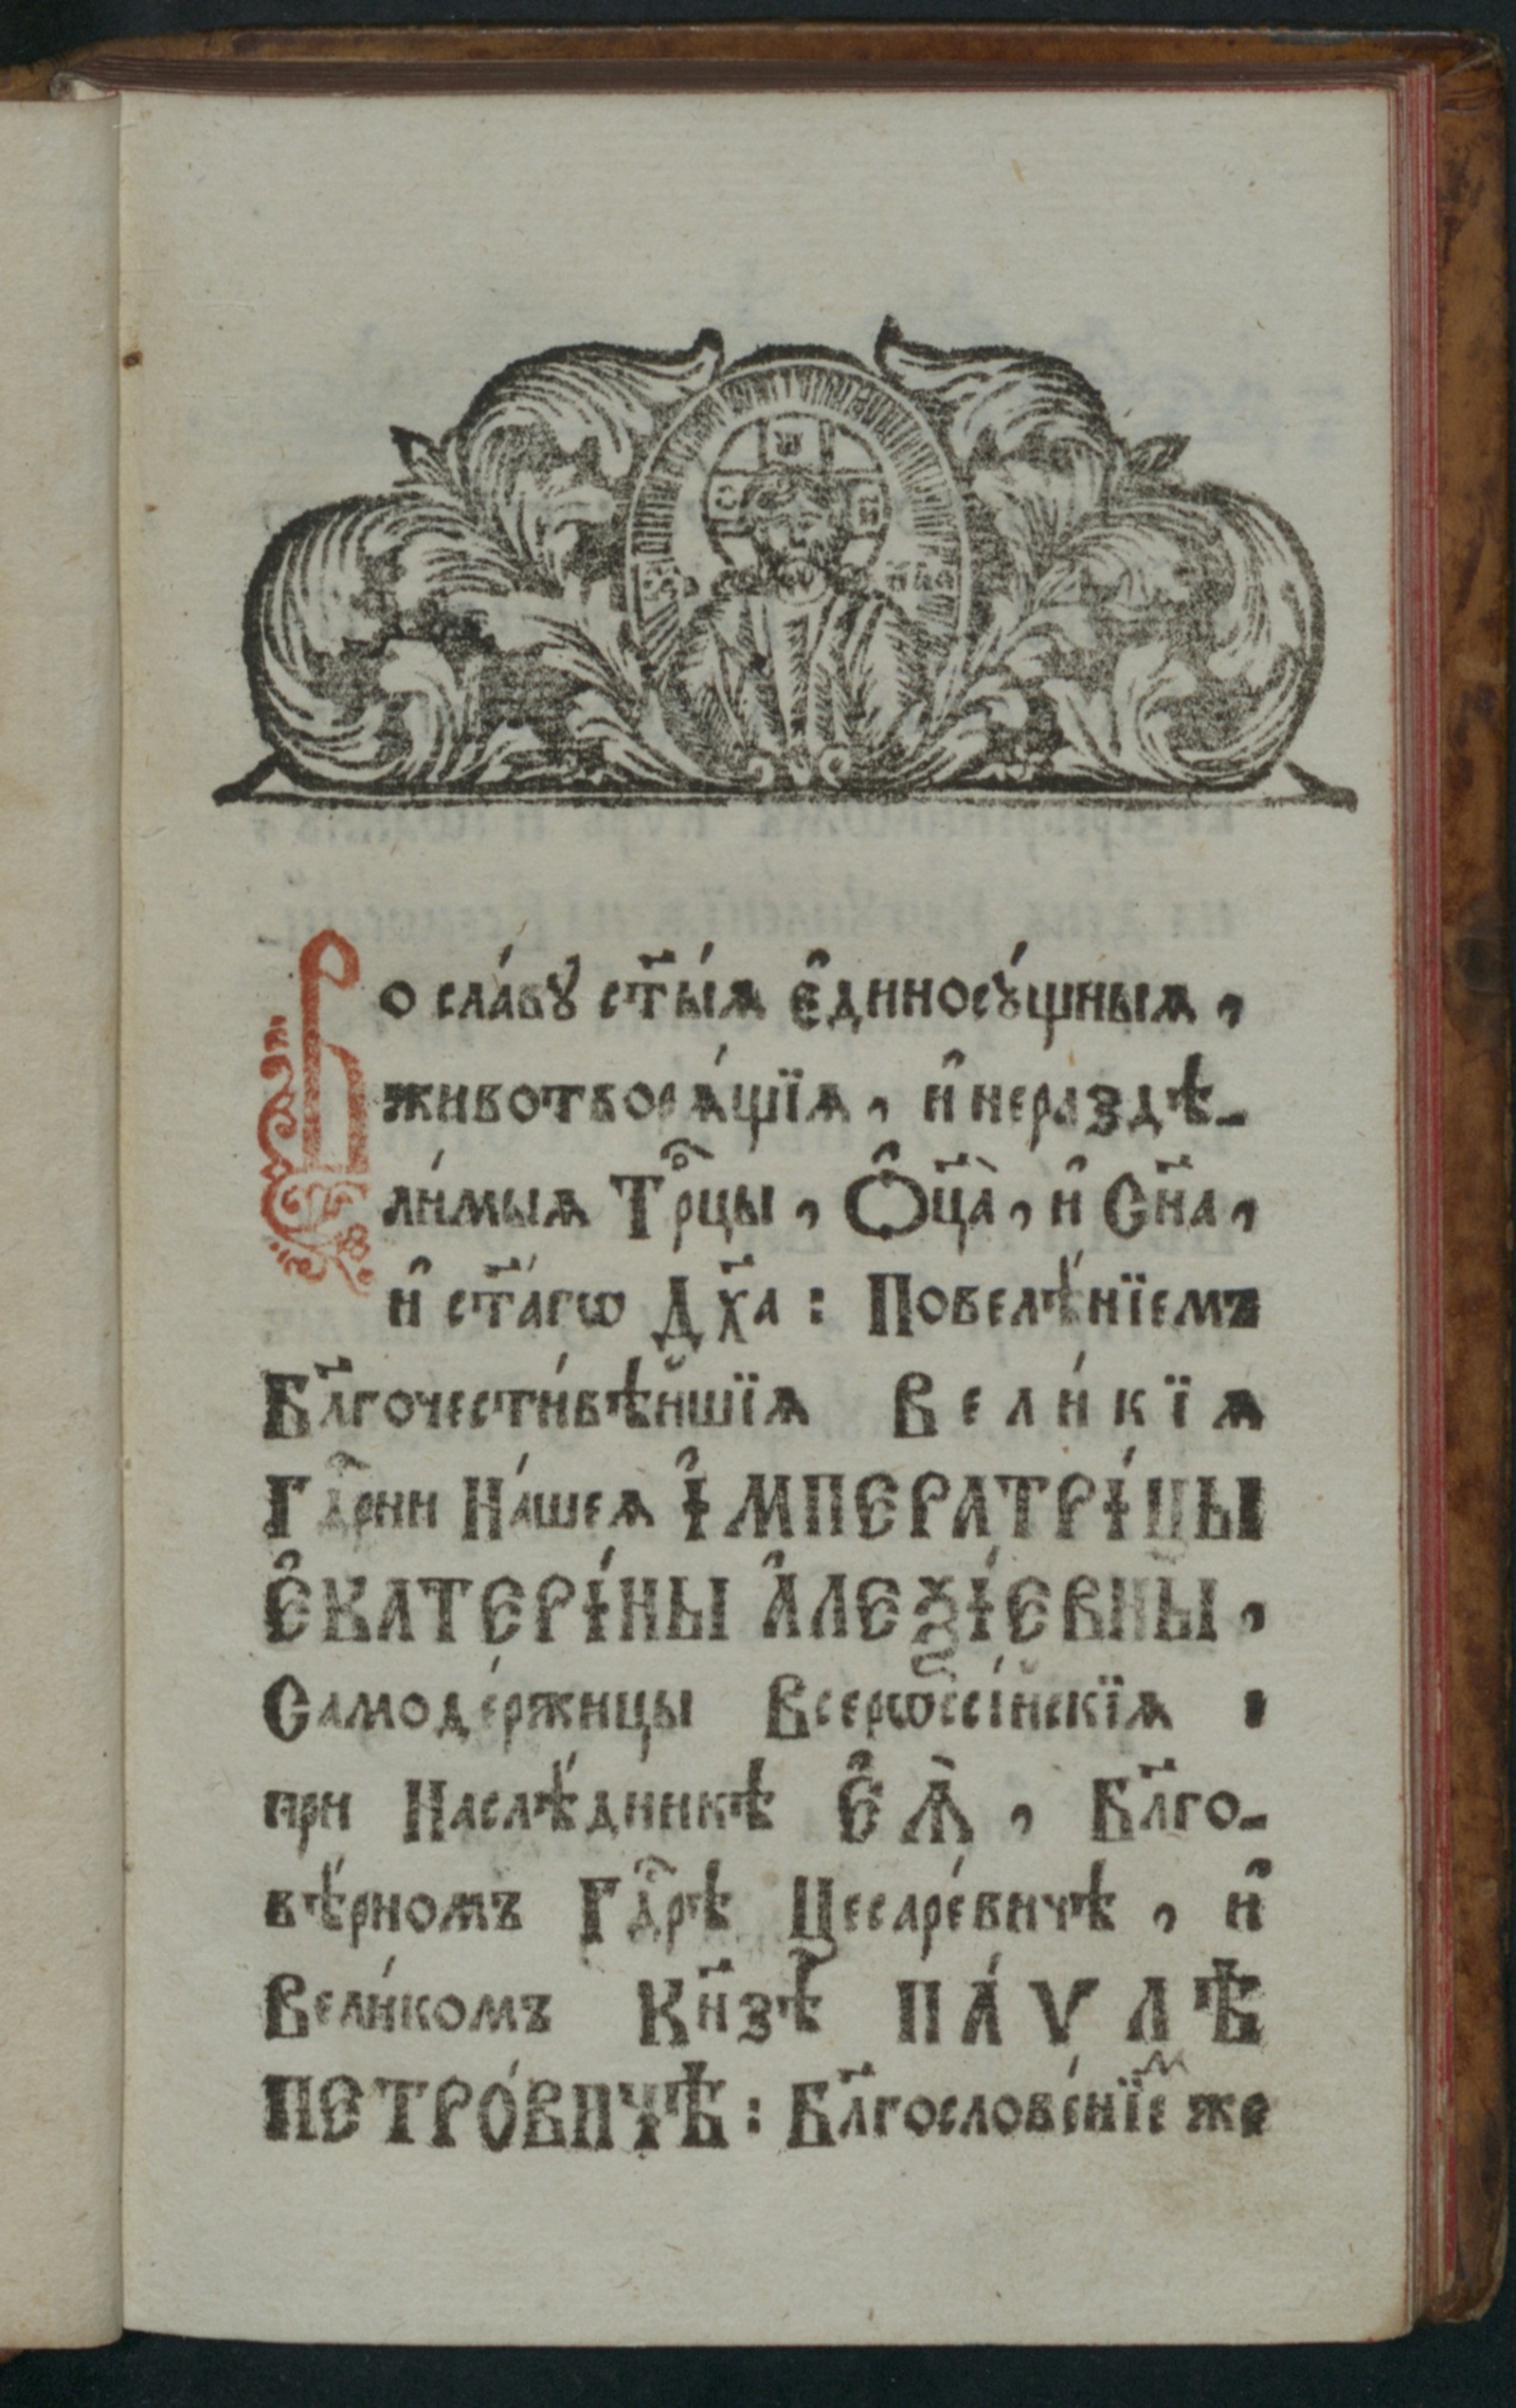 Во сла́вꙋ ст҃ы́ѧ є҆диносꙋ́щныѧ,
животворѧ́щїѧ, и҆ нераздѣ-
ли́мыѧ Трⷪ҇цы, Ѻ҆ц҃а̀, и҆ Сн҃а,
и҆ ст҃а́гѡ Дх҃а: Повелѣ́нїемъ
Бл҃гочести́вѣйшїѧ Вели́кїѧ
Гдⷭ҇рни На́шеѧ І҆МПЕРАТРІ́ЦЫ
Є҆КАТЕРІ́НЫ А҆ЛЕѮІ́ЕВНЫ,
Самоде́ржицы Всерѡссі́йскїѧ :
при Наслѣ́дникѣ Є҆Ѧ̀, Бл҃го-
вѣ́рномъ Гдⷭ҇рѣ Цесаре́вичѣ, и҆
Вели́комъ Кн҃зѣ ПА́ѴЛѢ
ПЕТРО́ВИЧѢ: Бл҃гослове́нїеⷨ же